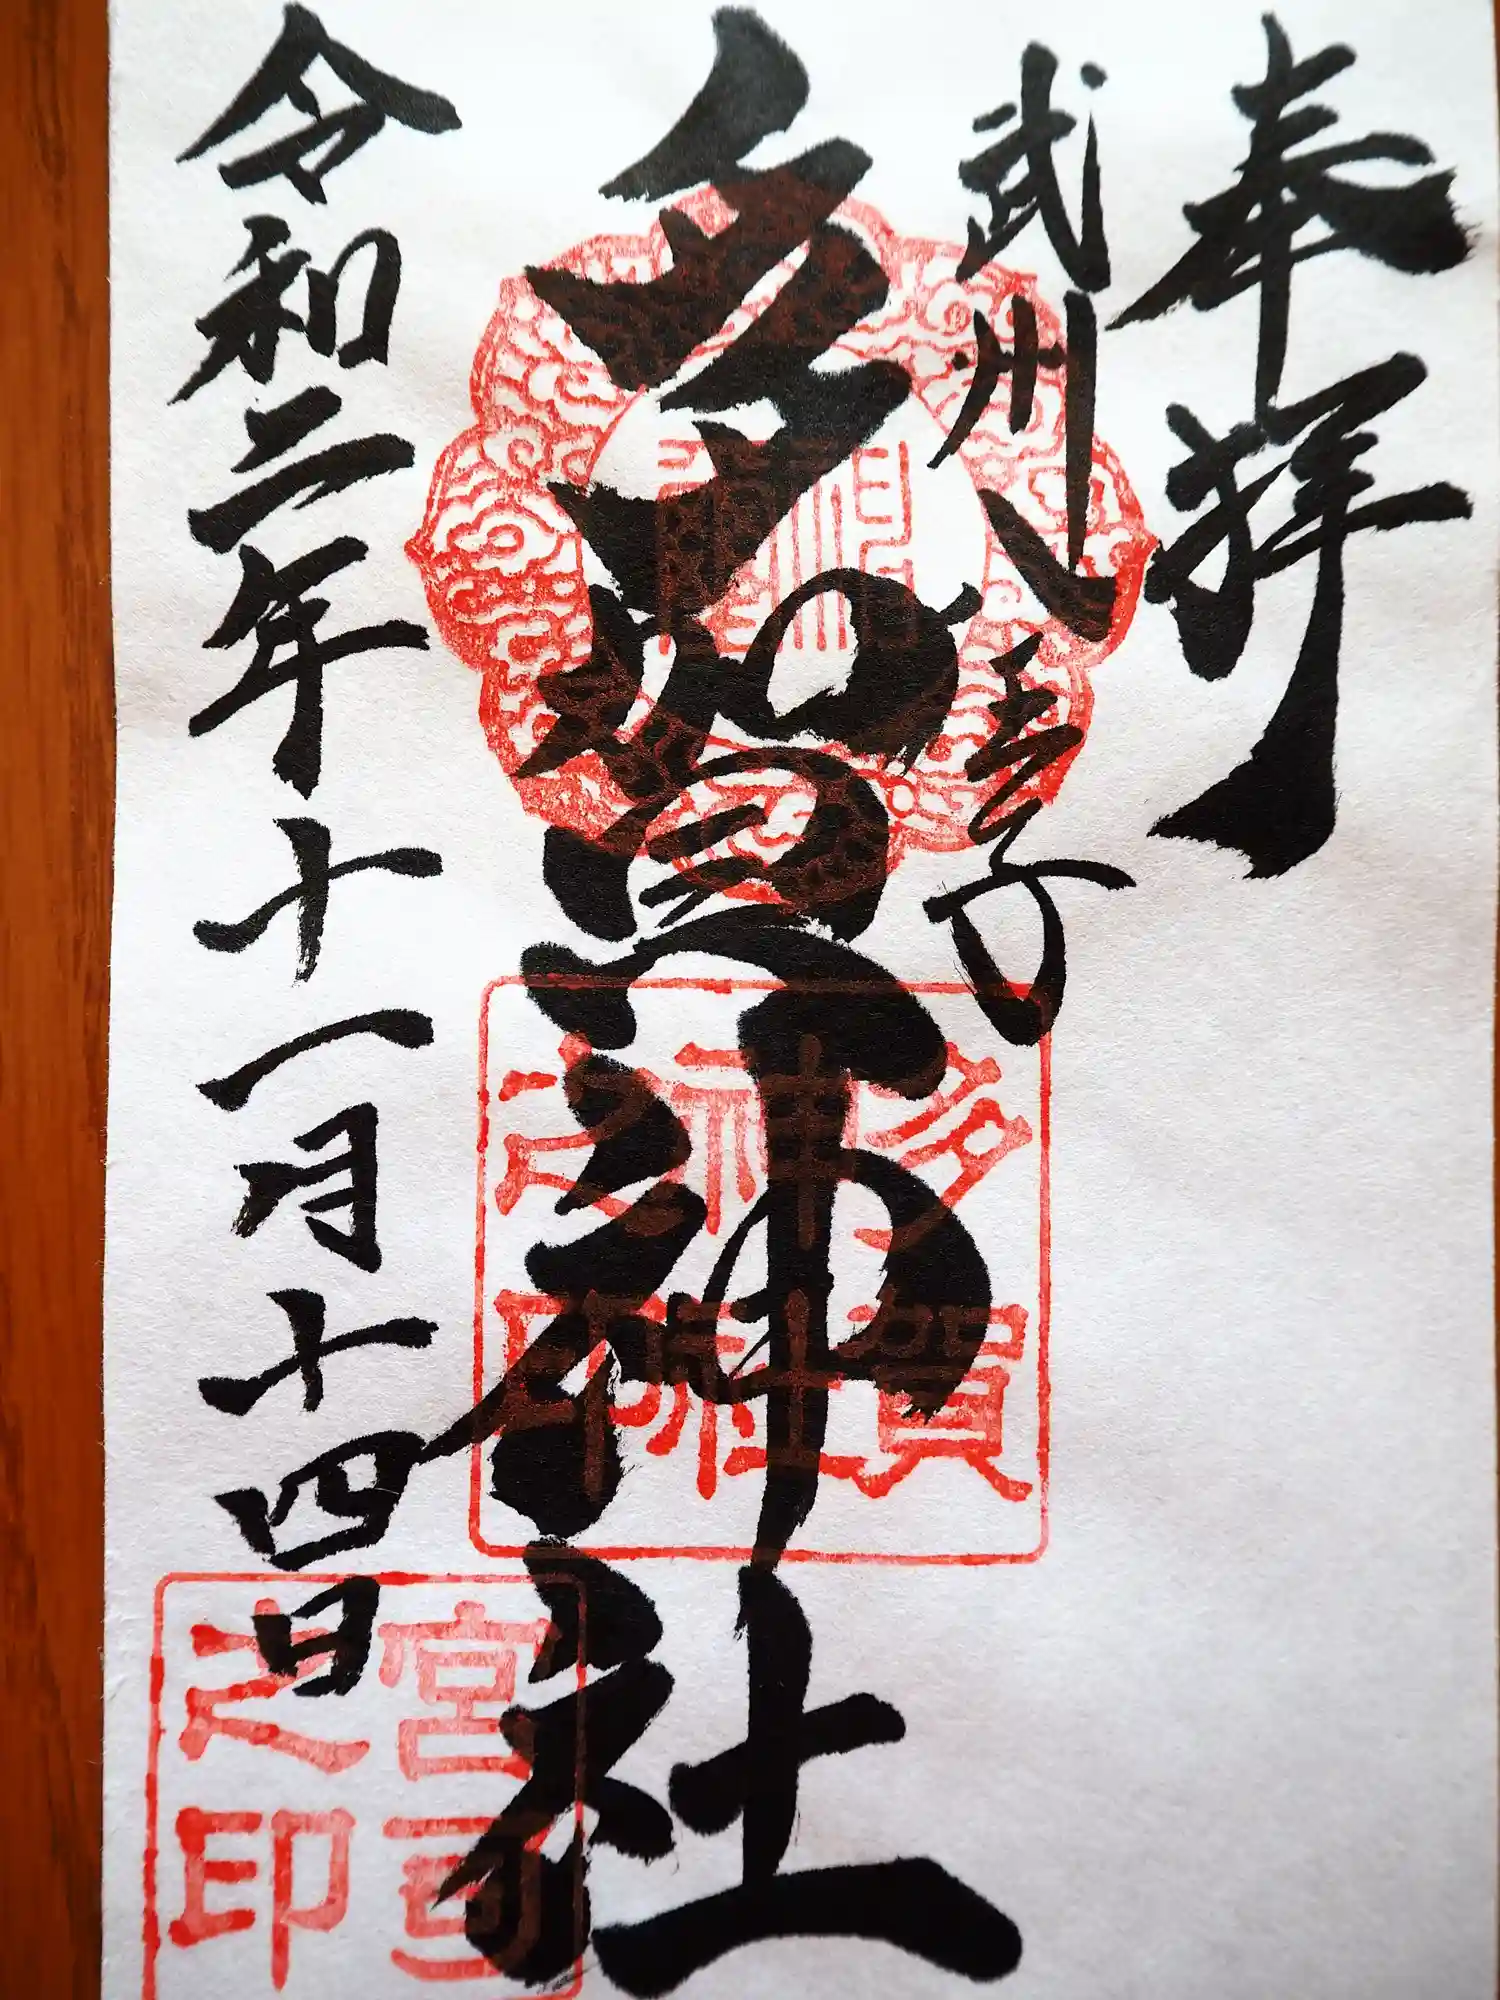 奉拝
武州 八王子
多賀神社
令和二年十一月十四日
多賀
神社
之印
宮司
之印